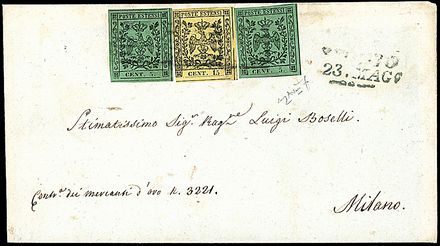 POSTE ESTENSI
POSTE ESTENSI
POSTE ESTENSI
CENT. 5.
CENT. 15
CENT. 5.
23. MAG
Stimatissimo Sig.r Rag.re Luigi Boselli.
Contr.a dei mercanti d'oro N. 3221.
Milano.